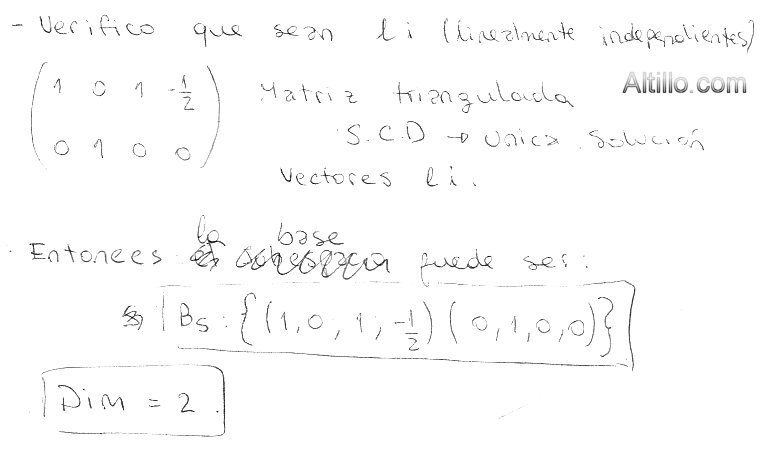 - Verifico que sean li (linealmente independientes)
Altillo.com
1 0 1 -1/2
0 1 0 0
Matriz triangulada
S.C.D → Unica Solución
Vectores li.
la base
· Entonces puede ser:
Bs: {(1,0,1,-1/2)(0,1,0,0)}
Dim = 2.